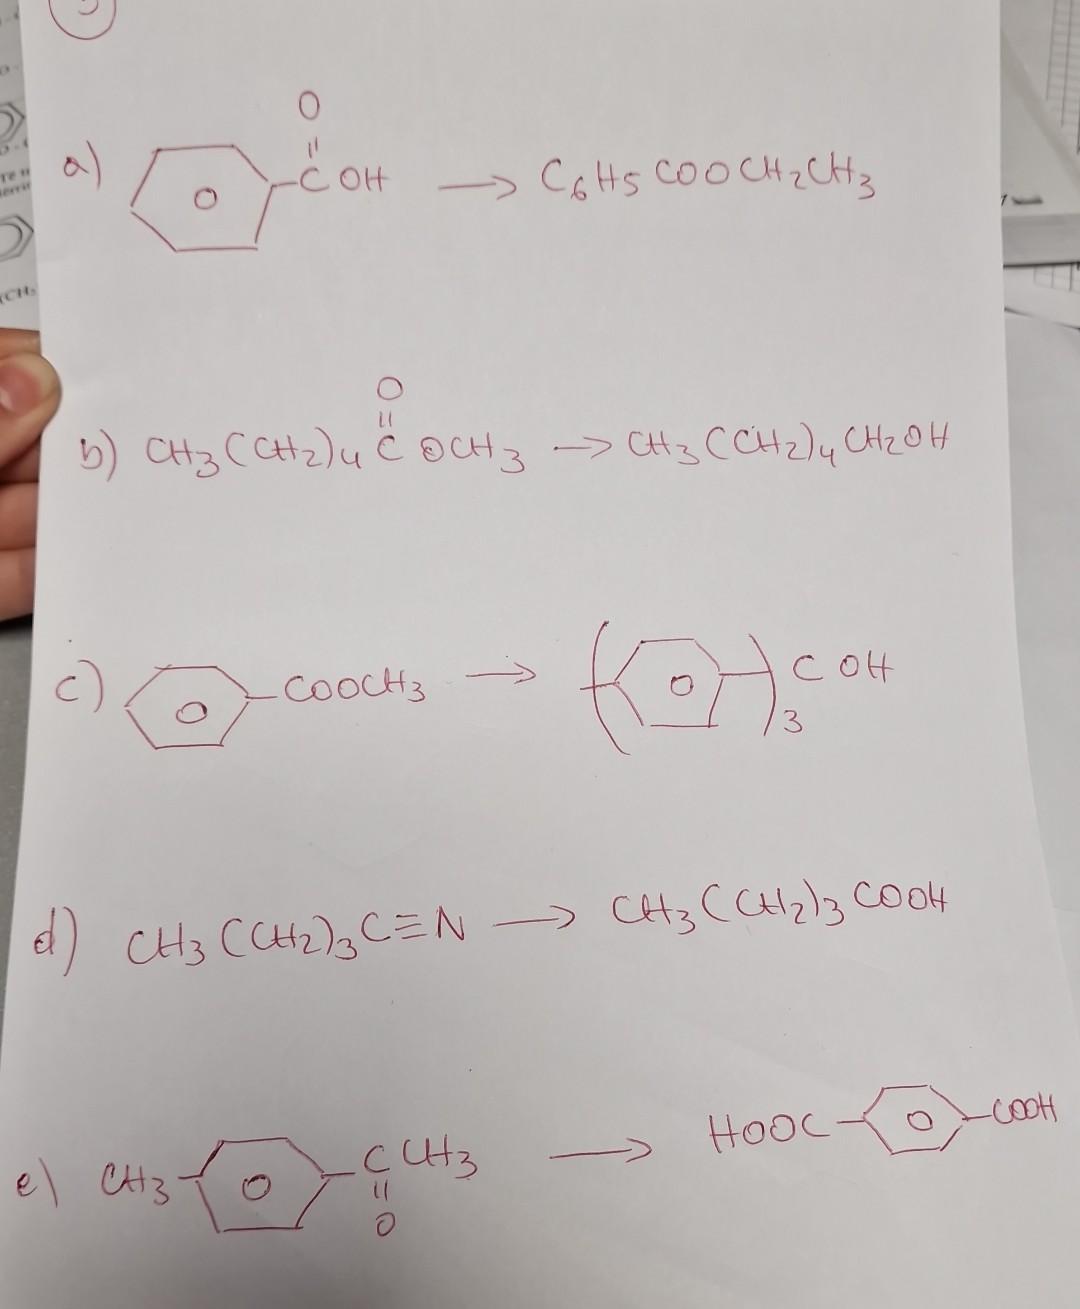 a) O
"
C OH → C6H5COOCH2CH3
O
b) O
"
CH3(CH2)4 C OCH3 → CH3(CH2)4CH2OH
c) O -COOCH3 → ( O )3 C OH
d) CH3(CH2)3C≡N → CH3(CH2)3COOH
e) CH3 O C CH3 → HOOC O COOH
"
O